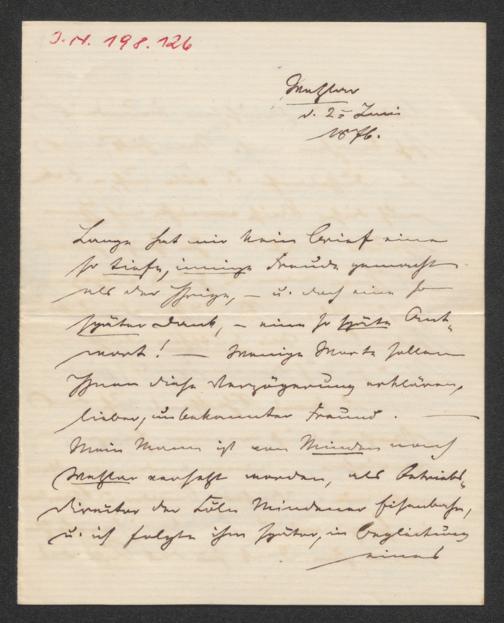 I.N. 198.126
Wetzlar
d. 25 Juni
1876.
Lange hat mir kein Brief eine
so tiefe, innige Freude gemacht
als der Ihrige, – u. doch eine so
später Dank, – eine so späte Ant-
wort! — Wenige Worte sollen
Ihnen diese Verzögerung erklären,
lieber, unbekannter Freund. —
Mein Mann ist von Minden nach
Wetzlar versetzt worden, als Betriebs-
direktor der Cöln Mindener Eisenbahn,
u. ich folgte ihm später, in Begleitung
eines